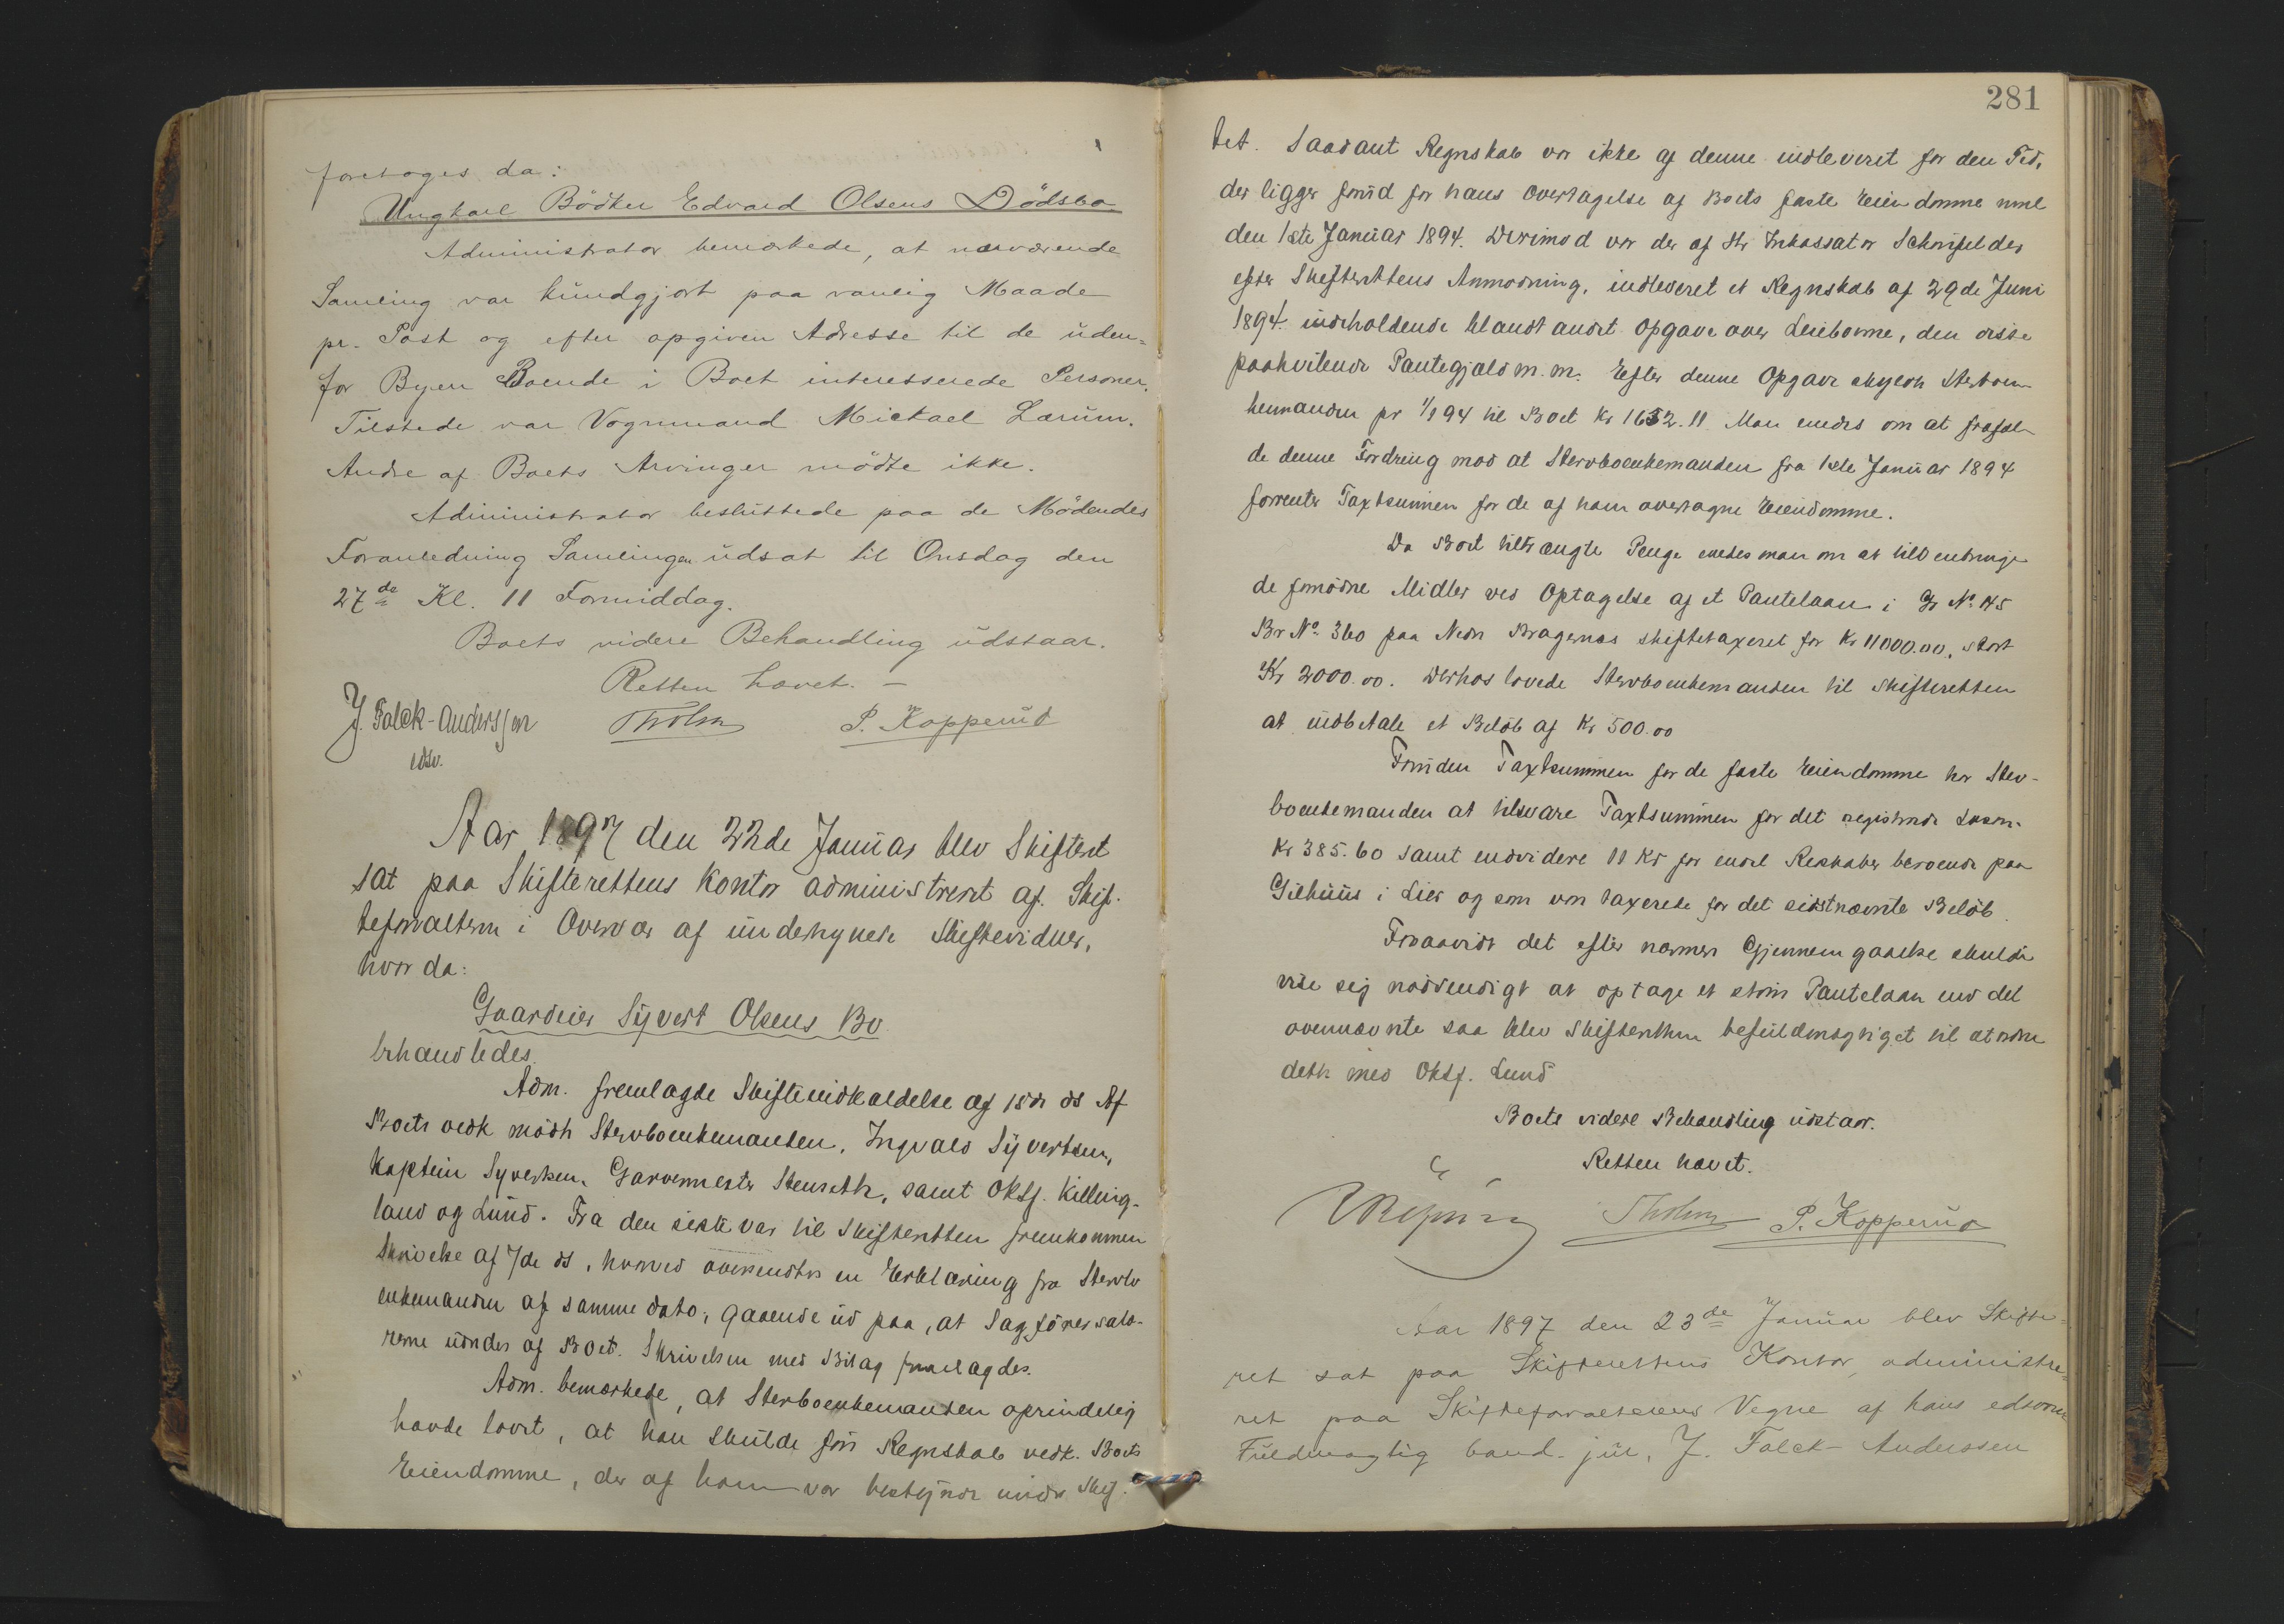 foretoges da:
Ungkarl Bödker Edvard Olsens Dödsbo
Administrator bemærkede, at nærværende
Samling var kundgjort paa vanlig Maade
pr. Post og efter opgiven Adresse til de uden-
for Byen Boende i Boet interesserede Personer.
Tilstede var Vognmand Mickael Larum.
Andre af Boets Arvinger mödte ikke.
Administrator besluttede paa de Mödendes
Foranledning Samlingen udsat til Onsdag den
27de Kl. 11 Formiddag.
Boets videre Behandling udstaar.
Retten hævet. —
J. Falck-Anderssen Tholm P. Kopperud
edsv.
Aar 1897 den 22de Januar blev Skifteret
sat paa Skifterettens Kontor administreret af Skif-
teforvalteren i Overvær af undertegnede Skiftevidner,
hvor da:
Gaardeier Syvert Olsens Bo
behandledes.
Adm. fremlagde Skifteindkaldelse af 15de ds Af
Boets vedk mödte Stervboenkemanden, Ingvald Syvertsen,
Kaptein Syvertsen, Garvermester Stenseth, samt Oksf. Killing-
land og Lund. Fra den sidste var til Skifteretten fremkommen
Skrivelse af 7de ds, hvorved oversendtes en Erklæring fra Stervbo
enkemanden af samme Dato, gaaende ud paa, at Sagförersalæ-
rerne udredes af Boet. Skrivelsen med Bilag fremlagdes.
Adm. bemærkede, at Stervboenkemanden oprindelig
havde lovet, at han skulde före Regnskab vedk. Boets
Eiendomme, der af ham var bestyrede under Skif-
281
tet. Saadant Regnskab var ikke af denne indleveret for den Tid,
der ligger forud for hans Overtagelse af Boets faste Eiendomme nml
den 1ste Januar 1894. Derimod var der af Hr Inkassator Schönfelder
efter Skifterettens Anmodning, indleveret et Regnskab af 29de Juni
1894 indeholdende blandt andet Opgave over Leieboerne, den disse
paahvilende Pantegjæld m.m. Efter denne Opgave skyldte Stervboen-
kemanden pr 1/1 94 til Boet Kr 1652.11 Man enedes om at frafal-
de denne Fordring mod at Stervboenkemanden fra 1ste Januar 1894
forrenter Taxtsummen for de af ham overtagne Eiendomme.
Da Boet tiltrængte Penge enedes man om at tilveiebringe
de fornödne Midler ved Optagelse af et Pantelaan i Gr No 145
Br No 360 paa Nedre Bragernæs skiftetaxeret for Kr 11000.00, stort
Kr 2000.00. Derhos lovede Stervboenkemanden til Skifteretten
at indbetale et Belöb af Kr 500.00
Foruden Taxtsummen for de faste Eiendomme har Sterv-
boenkemanden at tilsvare Taxtsummen for det registrerede Lösöre
Kr 385.60 samt endvidere 11 Kr for endel Redskaber beroende paa
Gilhuus i Lier og som var taxerede for det sidstnævnte Belöb.
Forsaavidt det efter nærmere Gjennemgaaelse skulde
vise sig nödvendigt at optage et större Pantelaan end det
ovennævnte saa blev Skifteretten befuldmægtiget til at ordne
dette med Oksf. Lund
Boets videre Behandling udstaar.
Retten hævet.
Tholm P. Kopperud
Aar 1897 den 23de Januar blev Skifte-
ret sat paa Skifterettens Kontor, administre-
ret paa Skifteforvalterens Vegne af hans edsvorne
Fuldmægtig cand. jur. J. Falck-Anderssen